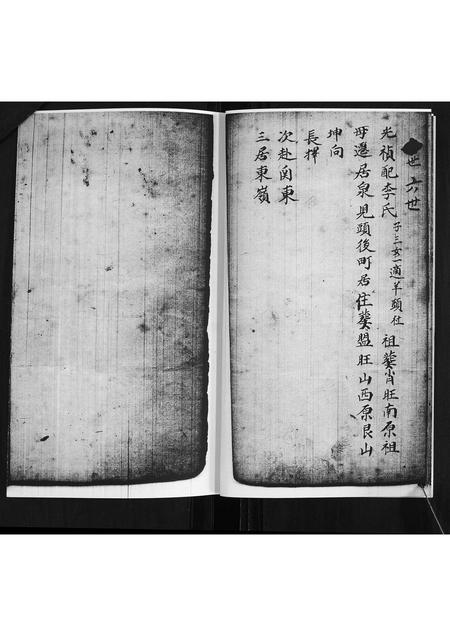 世六世
光禎配李氏 子三女一適羊頭社 祖䔉肖旺南原祖
母遷居泉見頭後町居住䔉盟旺山西原艮山
坤向
長擇
次赴関東
三居東嶺